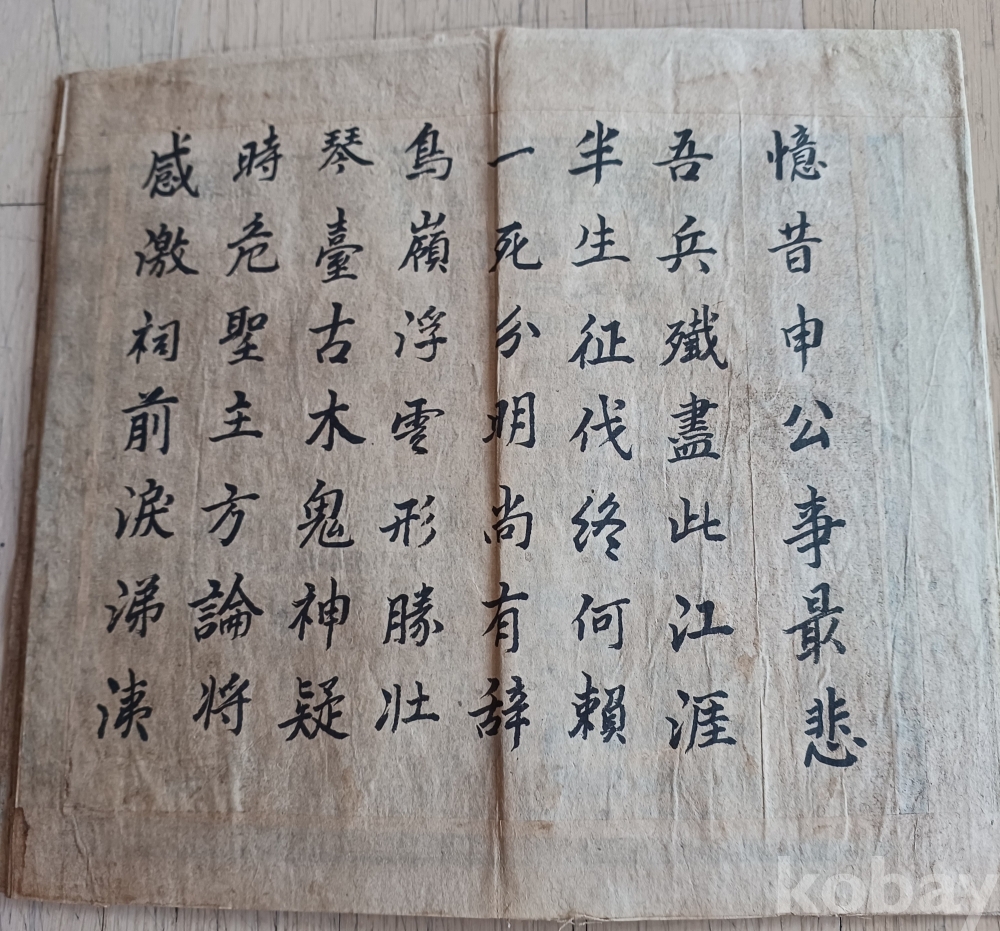 憶昔申公事最悲
吾兵殲盡此江涯
半生征伐終何賴
一死分明尚有辞
鳥嶺浮雲形勝壯
琴臺古木鬼神疑
時危聖主方論将
感激祠前淚涕洟
kobay